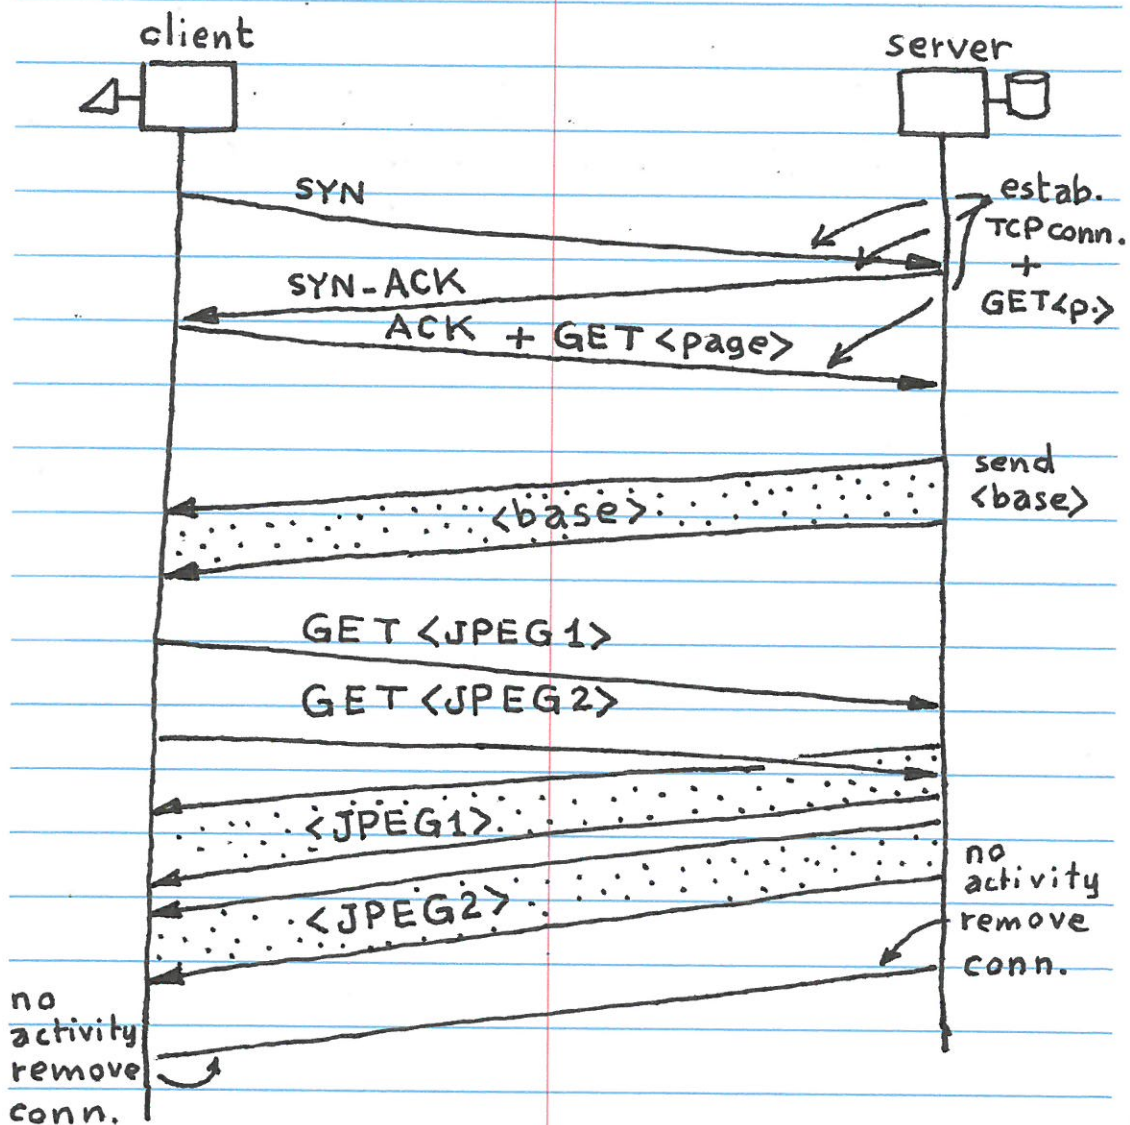 client
server
SYN
estab.
TCP conn.
+
GET<p.>
SYN-ACK
ACK + GET <page>
send
<base>
<base>
GET <JPEG1>
GET <JPEG2>
<JPEG1>
<JPEG2>
no
activity
remove
conn.
no
activity
remove
conn.